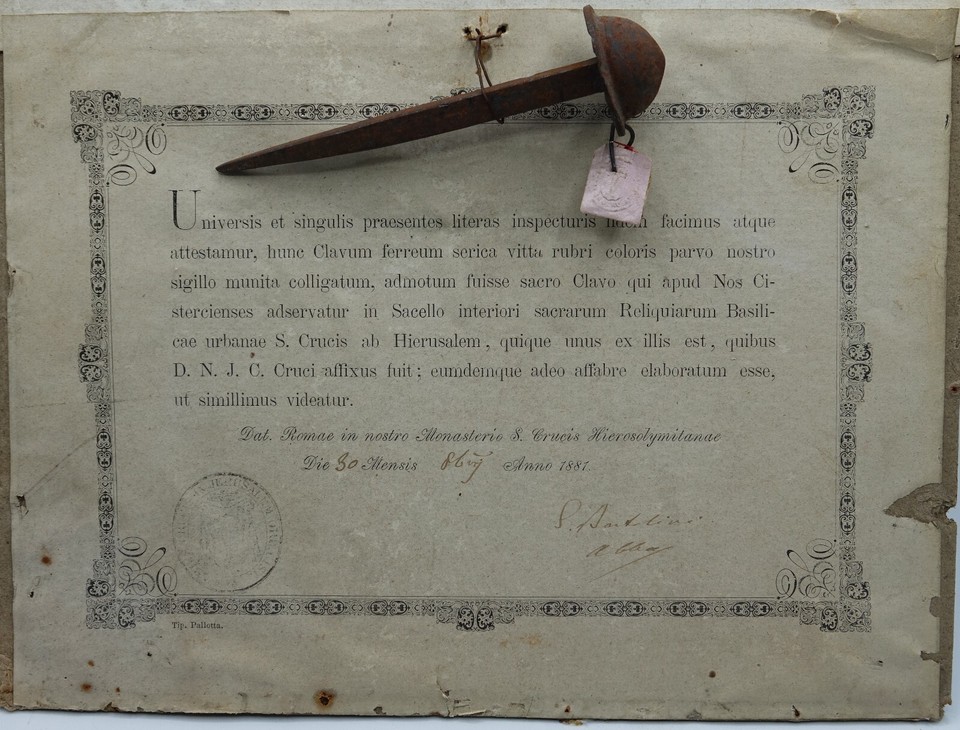 Universis et singulis praesentes literas inspecturis fidem facimus atque
attestamur, hunc Clavum ferreum serica vitta rubri coloris parvo nostro
sigillo munita colligatum, admotum fuisse sacro Clavo qui apud Nos Ci-
stercienses adservatur in Sacello interiori sacrarum Reliquiarum Basili-
cae urbanae S. Crucis ab Hierusalem, quique unus ex illis est, quibus
D. N. J. C. Cruci affixus fuit; eumdemque adeo affabre elaboratum esse,
ut simillimus videatur.
Dat. Romae in nostro Monasterio S. Crucis Hierosolymitanae
Die 30 Mensis Anno 1881.
Bartolini
Tip. Pallotta.